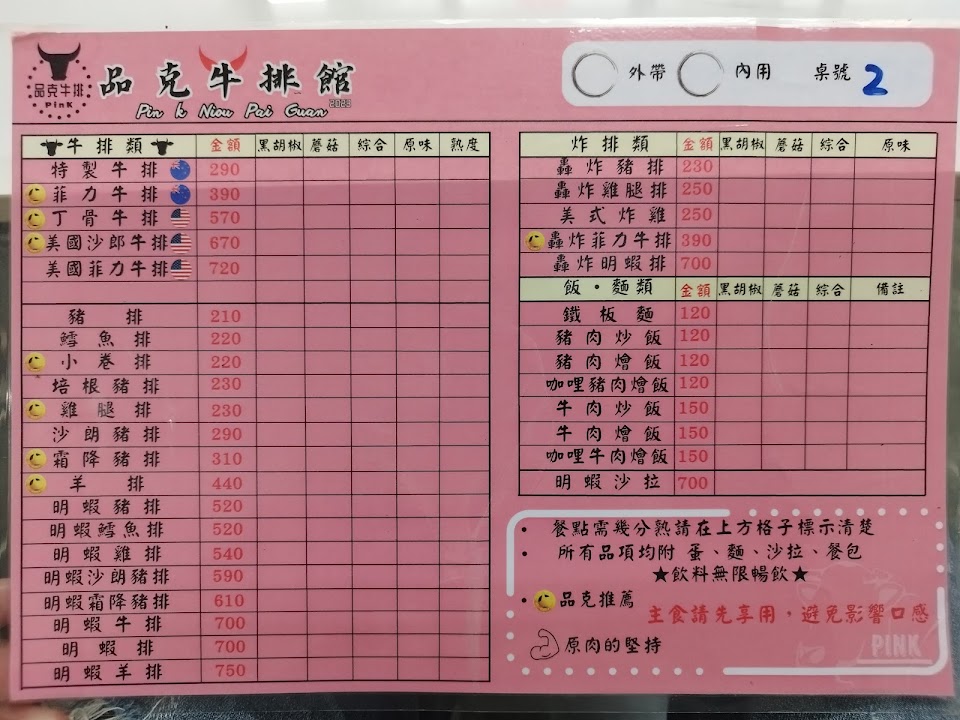 品克牛排
PinK
品克牛排館
2023
Pin k Niou Pai Guan
外帶 內用 桌號 2
牛排類 金額 黑胡椒 蘑菇 綜合 原味 熟度
特製牛排 290
菲力牛排 390
丁骨牛排 570
美國沙郎牛排 670
美國菲力牛排 720
豬排 210
鱈魚排 220
小卷排 220
培根豬排 230
雞腿排 230
沙朗豬排 290
霜降豬排 310
羊排 440
明蝦豬排 520
明蝦鱈魚排 520
明蝦雞排 540
明蝦沙朗豬排 590
明蝦霜降豬排 610
明蝦牛排 700
明蝦排 700
明蝦羊排 750
炸排類 金額 黑胡椒 蘑菇 綜合 原味
轟炸豬排 230
轟炸雞腿排 250
美式炸雞 250
轟炸菲力牛排 390
轟炸明蝦排 700
飯·麵類 金額 黑胡椒 蘑菇 綜合 備註
鐵板麵 120
豬肉炒飯 120
豬肉燴飯 120
咖哩豬肉燴飯 120
牛肉炒飯 150
牛肉燴飯 150
咖哩牛肉燴飯 150
明蝦沙拉 700
• 餐點需幾分熟請在上方格子標示清楚
• 所有品項均附 蛋、麵、沙拉、餐包
★飲料無限暢飲★
• 品克推薦
主食請先享用，避免影響口感
原肉的堅持
PINK